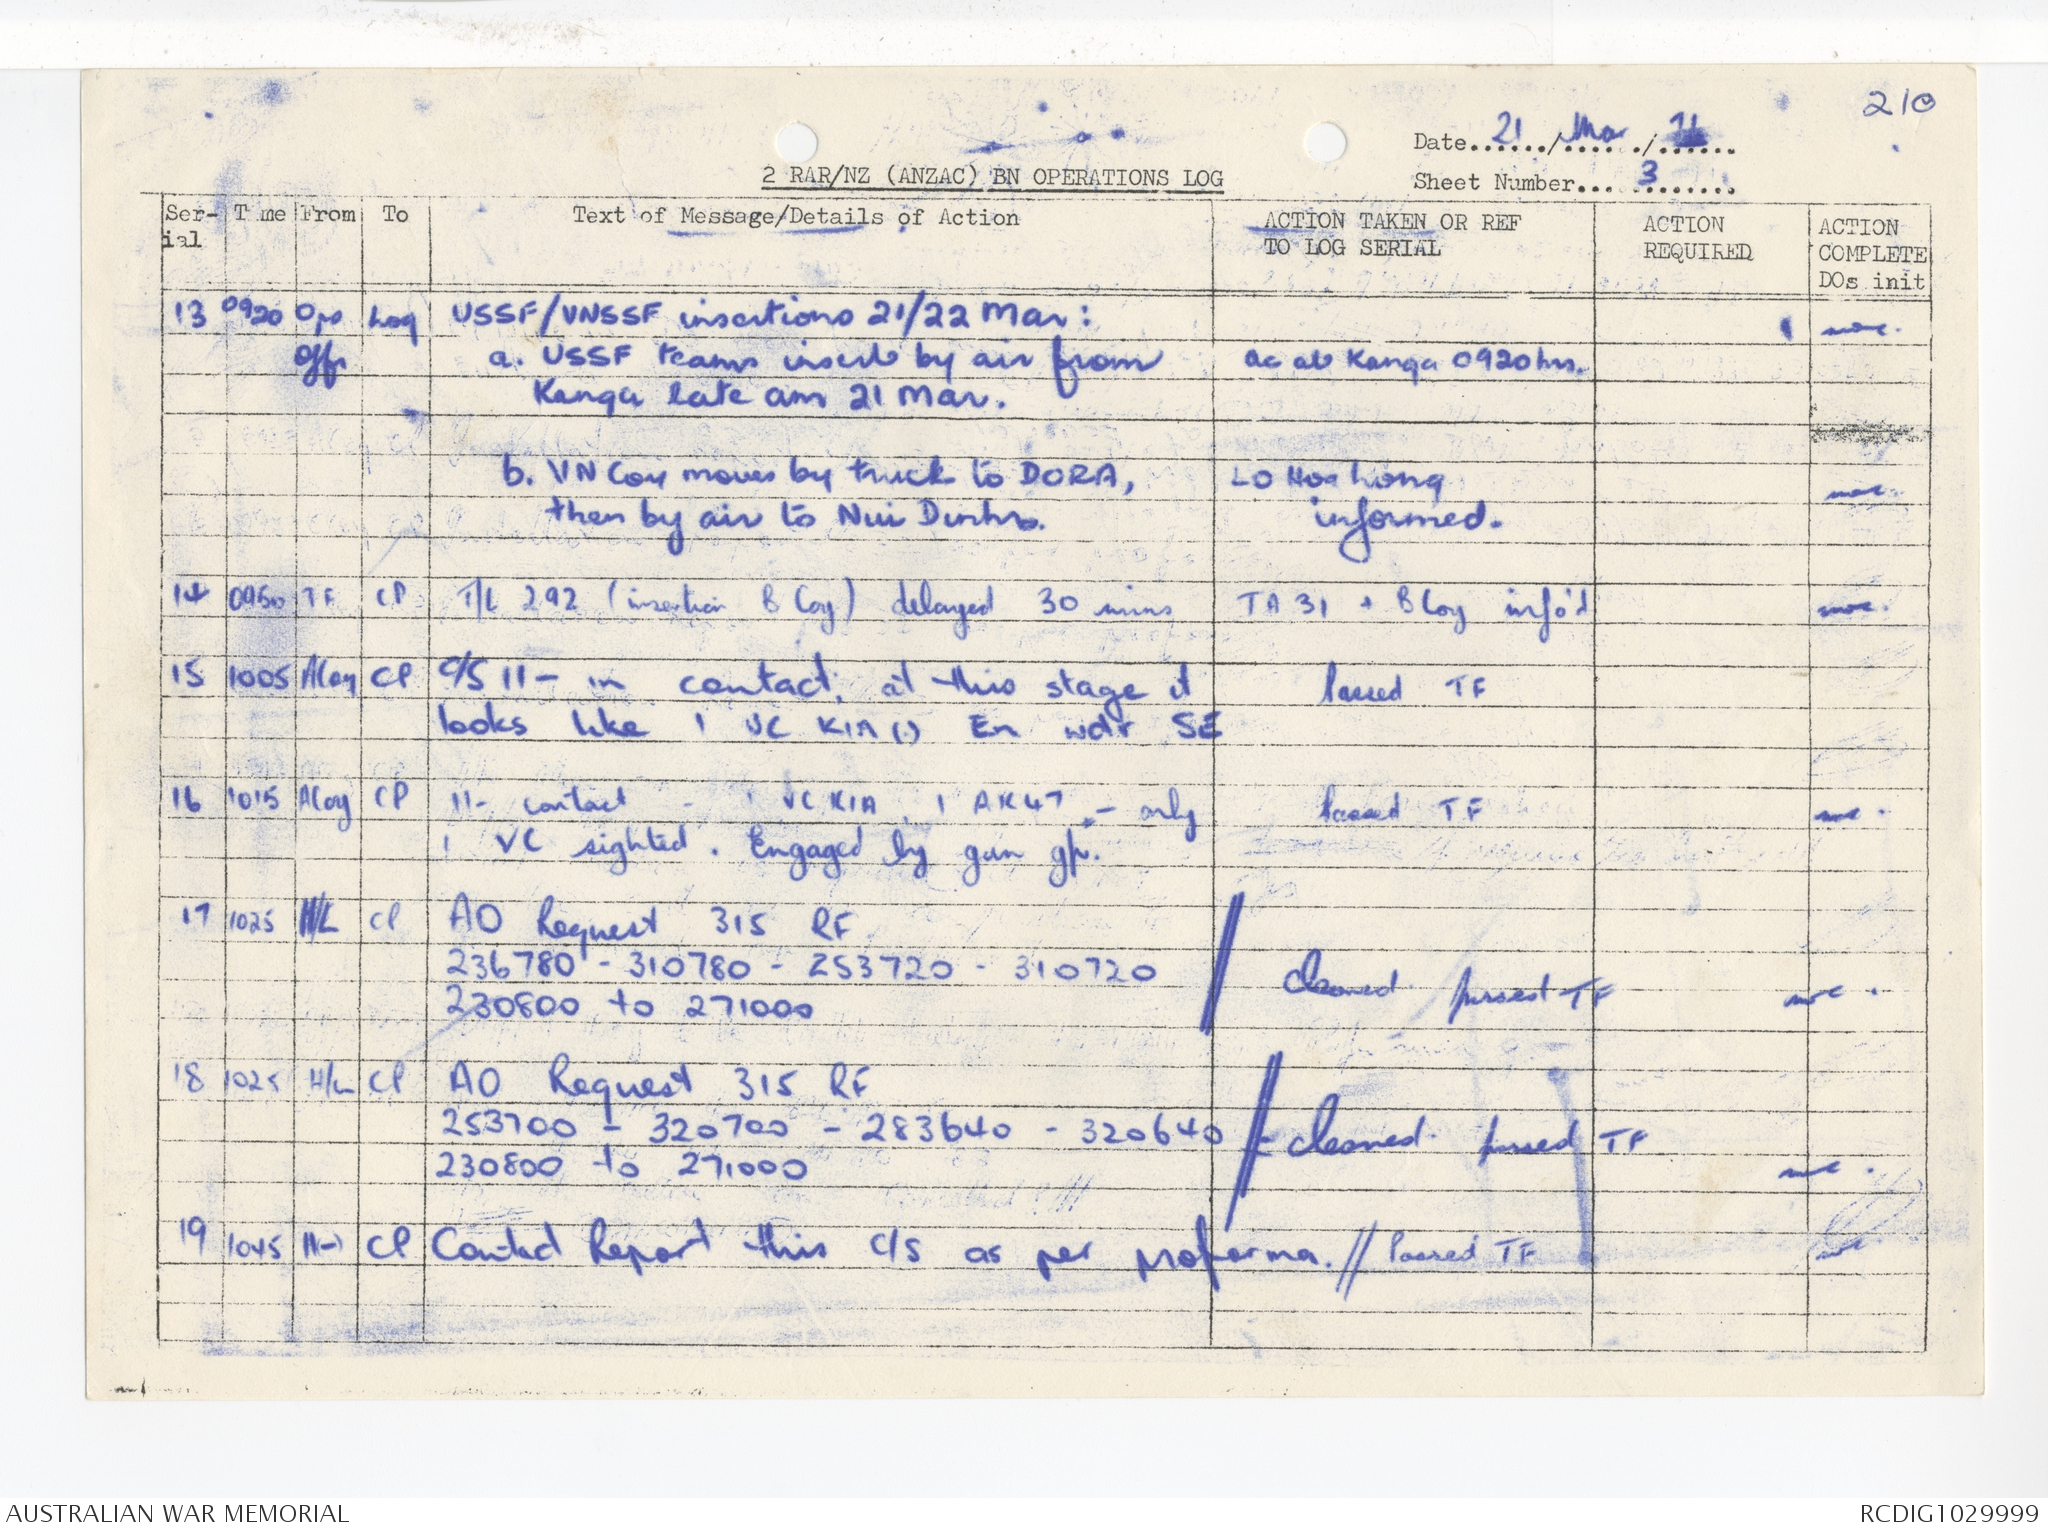 210
Date 21/Mar/71
Sheet Number 3
2 RAR/NZ (ANZAC) BN OPERATIONS LOG
Ser-ial Time From To Text of Message/Details of Action ACTION TAKEN OR REF TO LOG SERIAL ACTION REQUIRED ACTION COMPLETE DOs init
13 0920 Ops Log USSF/VNSSF insertions 21/22 Mar:
Offr a. USSF teams insert by air from ac at Kanga 0920 hrs.
Kanga late am 21 Mar.
b. VN Coy moves by truck to DORA, LO Hoa Long
then by air to Nui Dinhs. informed.
14 0950 TF CP T/L 292 (insertion B Coy) delayed 30 mins TA31 + B Coy info'd
15 1005 A Coy CP C/S 11- in contact, at this stage it Passed TF
looks like 1 VC KIA (.) En wdr SE
16 1015 A Coy CP 11- contact - 1 VC KIA, 1 AK47 - only Passed TF
1 VC sighted. Engaged by gun gp.
17 1025 H/L CP AO Request 315 RF
236780 - 310780 - 253720 - 310720 cleared. passed TF
230800 to 271000
18 1025 H/L CP AO Request 315 RF
253700 - 320700 - 283640 - 320640 - cleared. passed TF
230800 to 271000
19 1045 11- CP Contact Report this C/S as per proforma. // Passed TF
AUSTRALIAN WAR MEMORIAL
RCDIG1029999